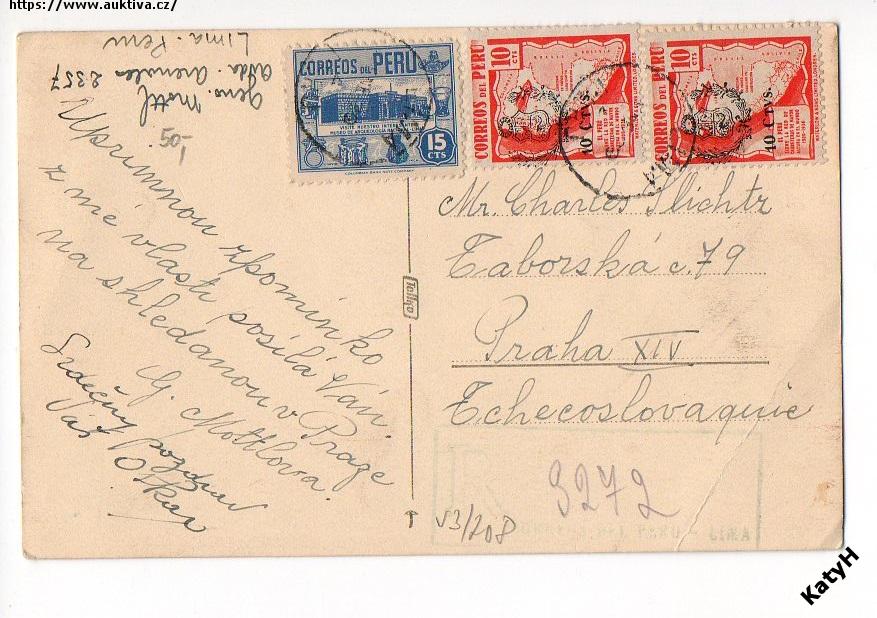 https://www.auktiva.cz/
Lima-Peru
Avda. Arenales 2357
Geno. Mottl
50,-
Upřímnou zpomínko
z mé vlasti posílá Vám.
na shledanou v Praze
G. Mottlova.
Srdečný pozdrav
Váš Oskar
CORREOS DEL PERU
VISITE NUESTRO INTERES
MUSEO DE ARQUEOLOGIA
15
CTS
COLUMBIAN BANK NOTE COMPANY
CORREOS DEL PERU
10
CTS
10 Ctvs.
LIMA
CORREOS DEL PERU
10
CTS
10 Ctvs.
LIMA
Mr. Charles Šlichtz
Taborská č. 79
Praha XIV
Tchecoslovaquie
R
9272
CORREOS DEL PERU - LIMA
53/208
KatyH